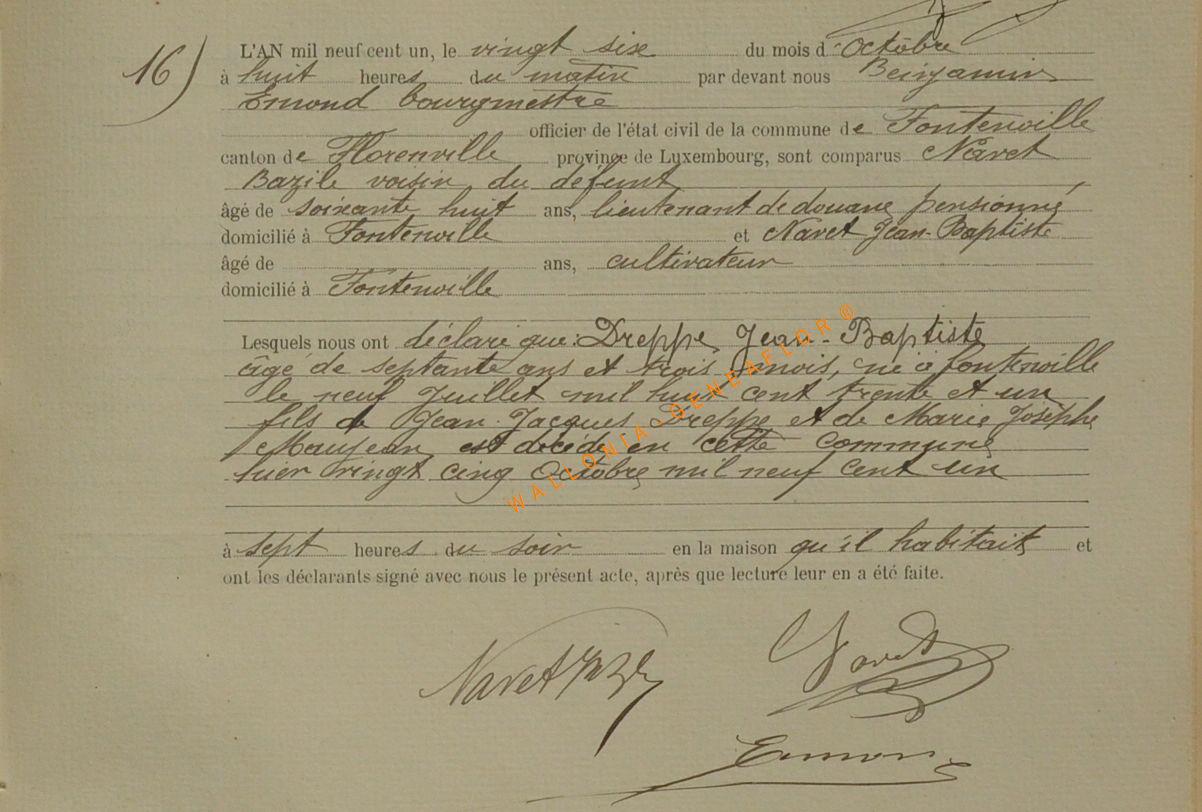 16)
L'AN mil neuf cent un, le vingt six du mois d'Octobre
à huit heures du matin par devant nous Benjamin
Emond bourgmestre
officier de l'état civil de la commune de Fontenoille
canton de Florenville province de Luxembourg, sont comparus Navet
Bazile voisin du défunt
âgé de soixante huit ans, lieutenant de douane pensionné
domicilié à Fontenoille et Navet Jean-Baptiste
âgé de ans, cultivateur
domicilié à Fontenoille
Lesquels nous ont déclaré que: Dreppe Jean-Baptiste
âgé de septante ans et trois mois, né à fontenoille
le neuf Juillet mil huit cent trente et un
fils de Jean Jacques Dreppe et de Marie Josèphe
Maujean est décédé en cette commune
hier vingt cinq Octobre mil neuf cent un
à sept heures du soir en la maison qu'il habitait et
ont les déclarants signé avec nous le présent acte, après que lecture leur en a été faite.
Navet
Navet
Emond
WALLONIA GENEAFLOR ©